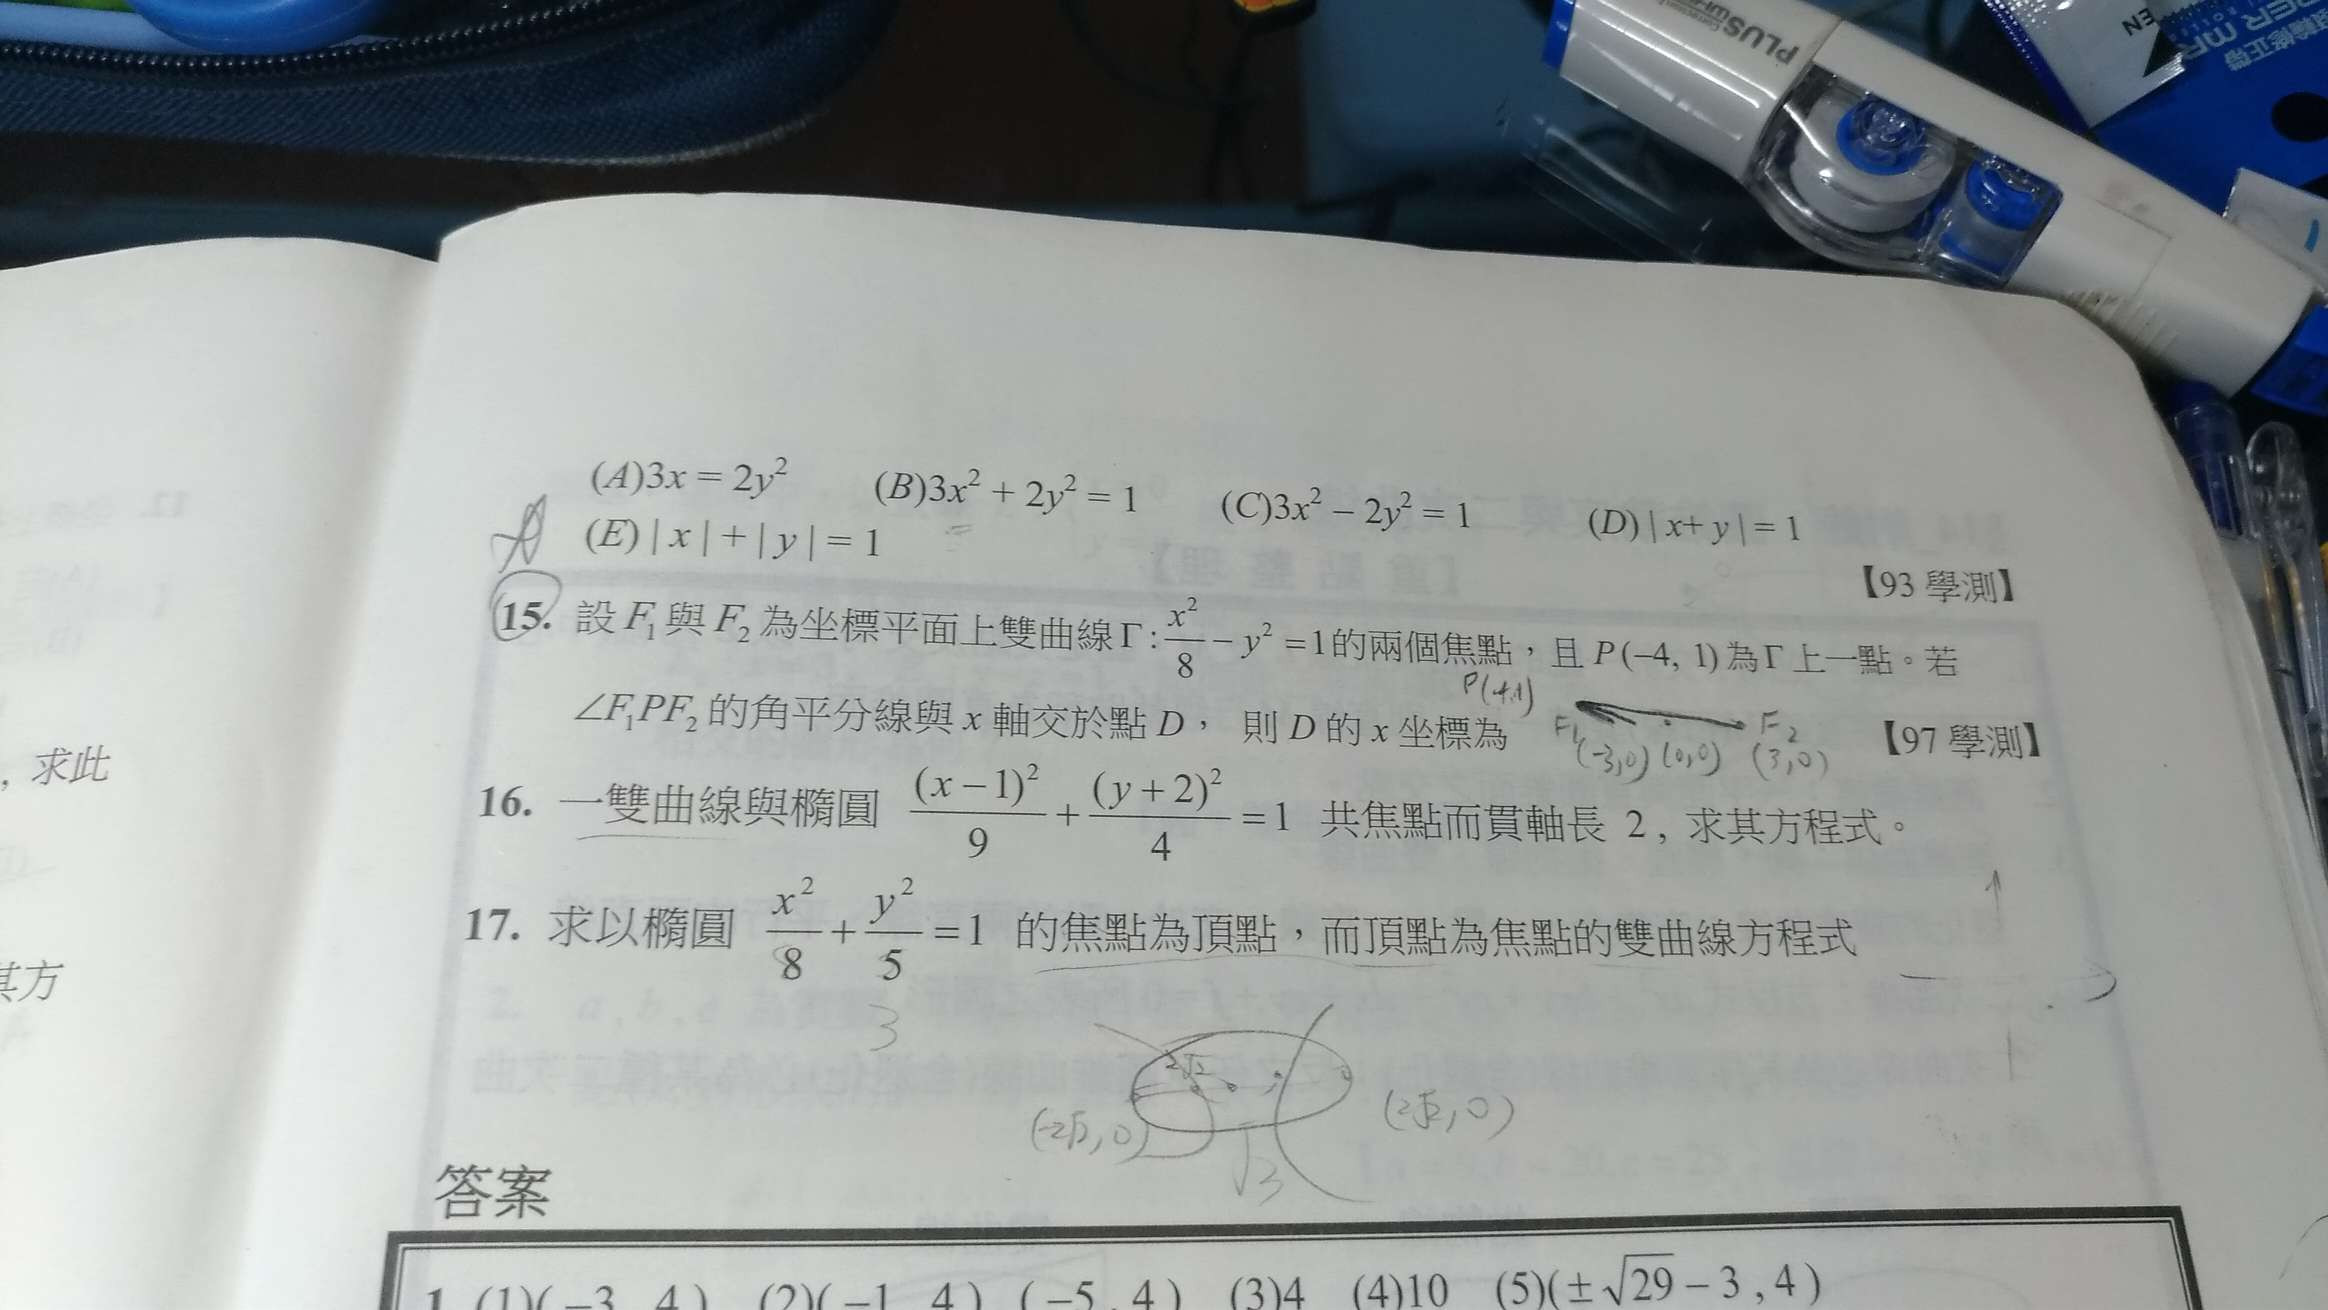 PLUS
(A)3x = 2y² (B)3x² + 2y² = 1 (C)3x² − 2y² = 1 (D)|x+y|=1
(E)|x|+|y|=1
【93 學測】
15. 設 F₁ 與 F₂ 為坐標平面上雙曲線 Γ : x²/8 − y² = 1 的兩個焦點，且 P(−4, 1) 為 Γ 上一點。若
∠F₁PF₂ 的角平分線與 x 軸交於點 D， 則 D 的 x 坐標為 【97 學測】
P(-4,1)
F₁ F₂
(-3,0) (0,0) (3,0)
16. 一雙曲線與橢圓 (x−1)²/9 + (y+2)²/4 = 1 共焦點而貫軸長 2, 求其方程式。
17. 求以橢圓 x²/8 + y²/5 = 1 的焦點為頂點，而頂點為焦點的雙曲線方程式
3
2√2
(-2√2,0) (2√2,0)
√3
, 求此
其方
答案
1. (1)(−3, 4) (2)(−1, 4) (−5, 4) (3)4 (4)10 (5)(±√29 − 3, 4)